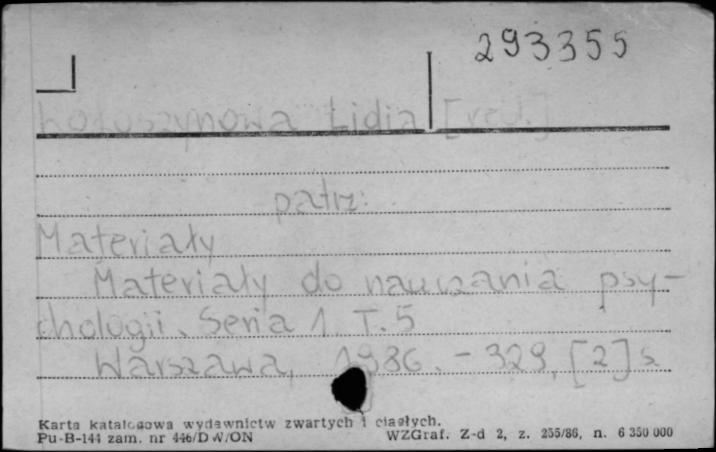 293355
Wołoszynowa Lidia [red.]
patrz:
Materiały
Materiały do nauczania psy-
chologii. Seria 1. T. 5
Warszawa, 1986. - 329, [2] s
Karta katalogowa wydawnictw zwartych i ciągłych.
Pu-B-144 zam. nr 446/DW/ON WZGraf. Z-d 2, z. 255/86, n. 6 350 000